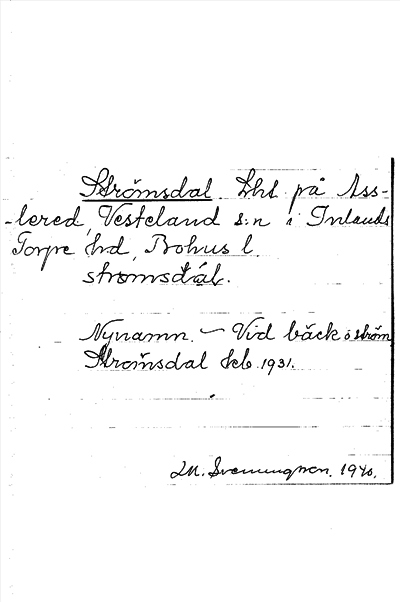 Strömsdal Lht på Ass-
-lered, Västerland s:n i Inlands
Torpe hd, Bohus l.
strömsdál.
Nynamn. – Vid bäck o ström
Strömsdal Jkb. 1931.
M. Svenungsson. 1940.